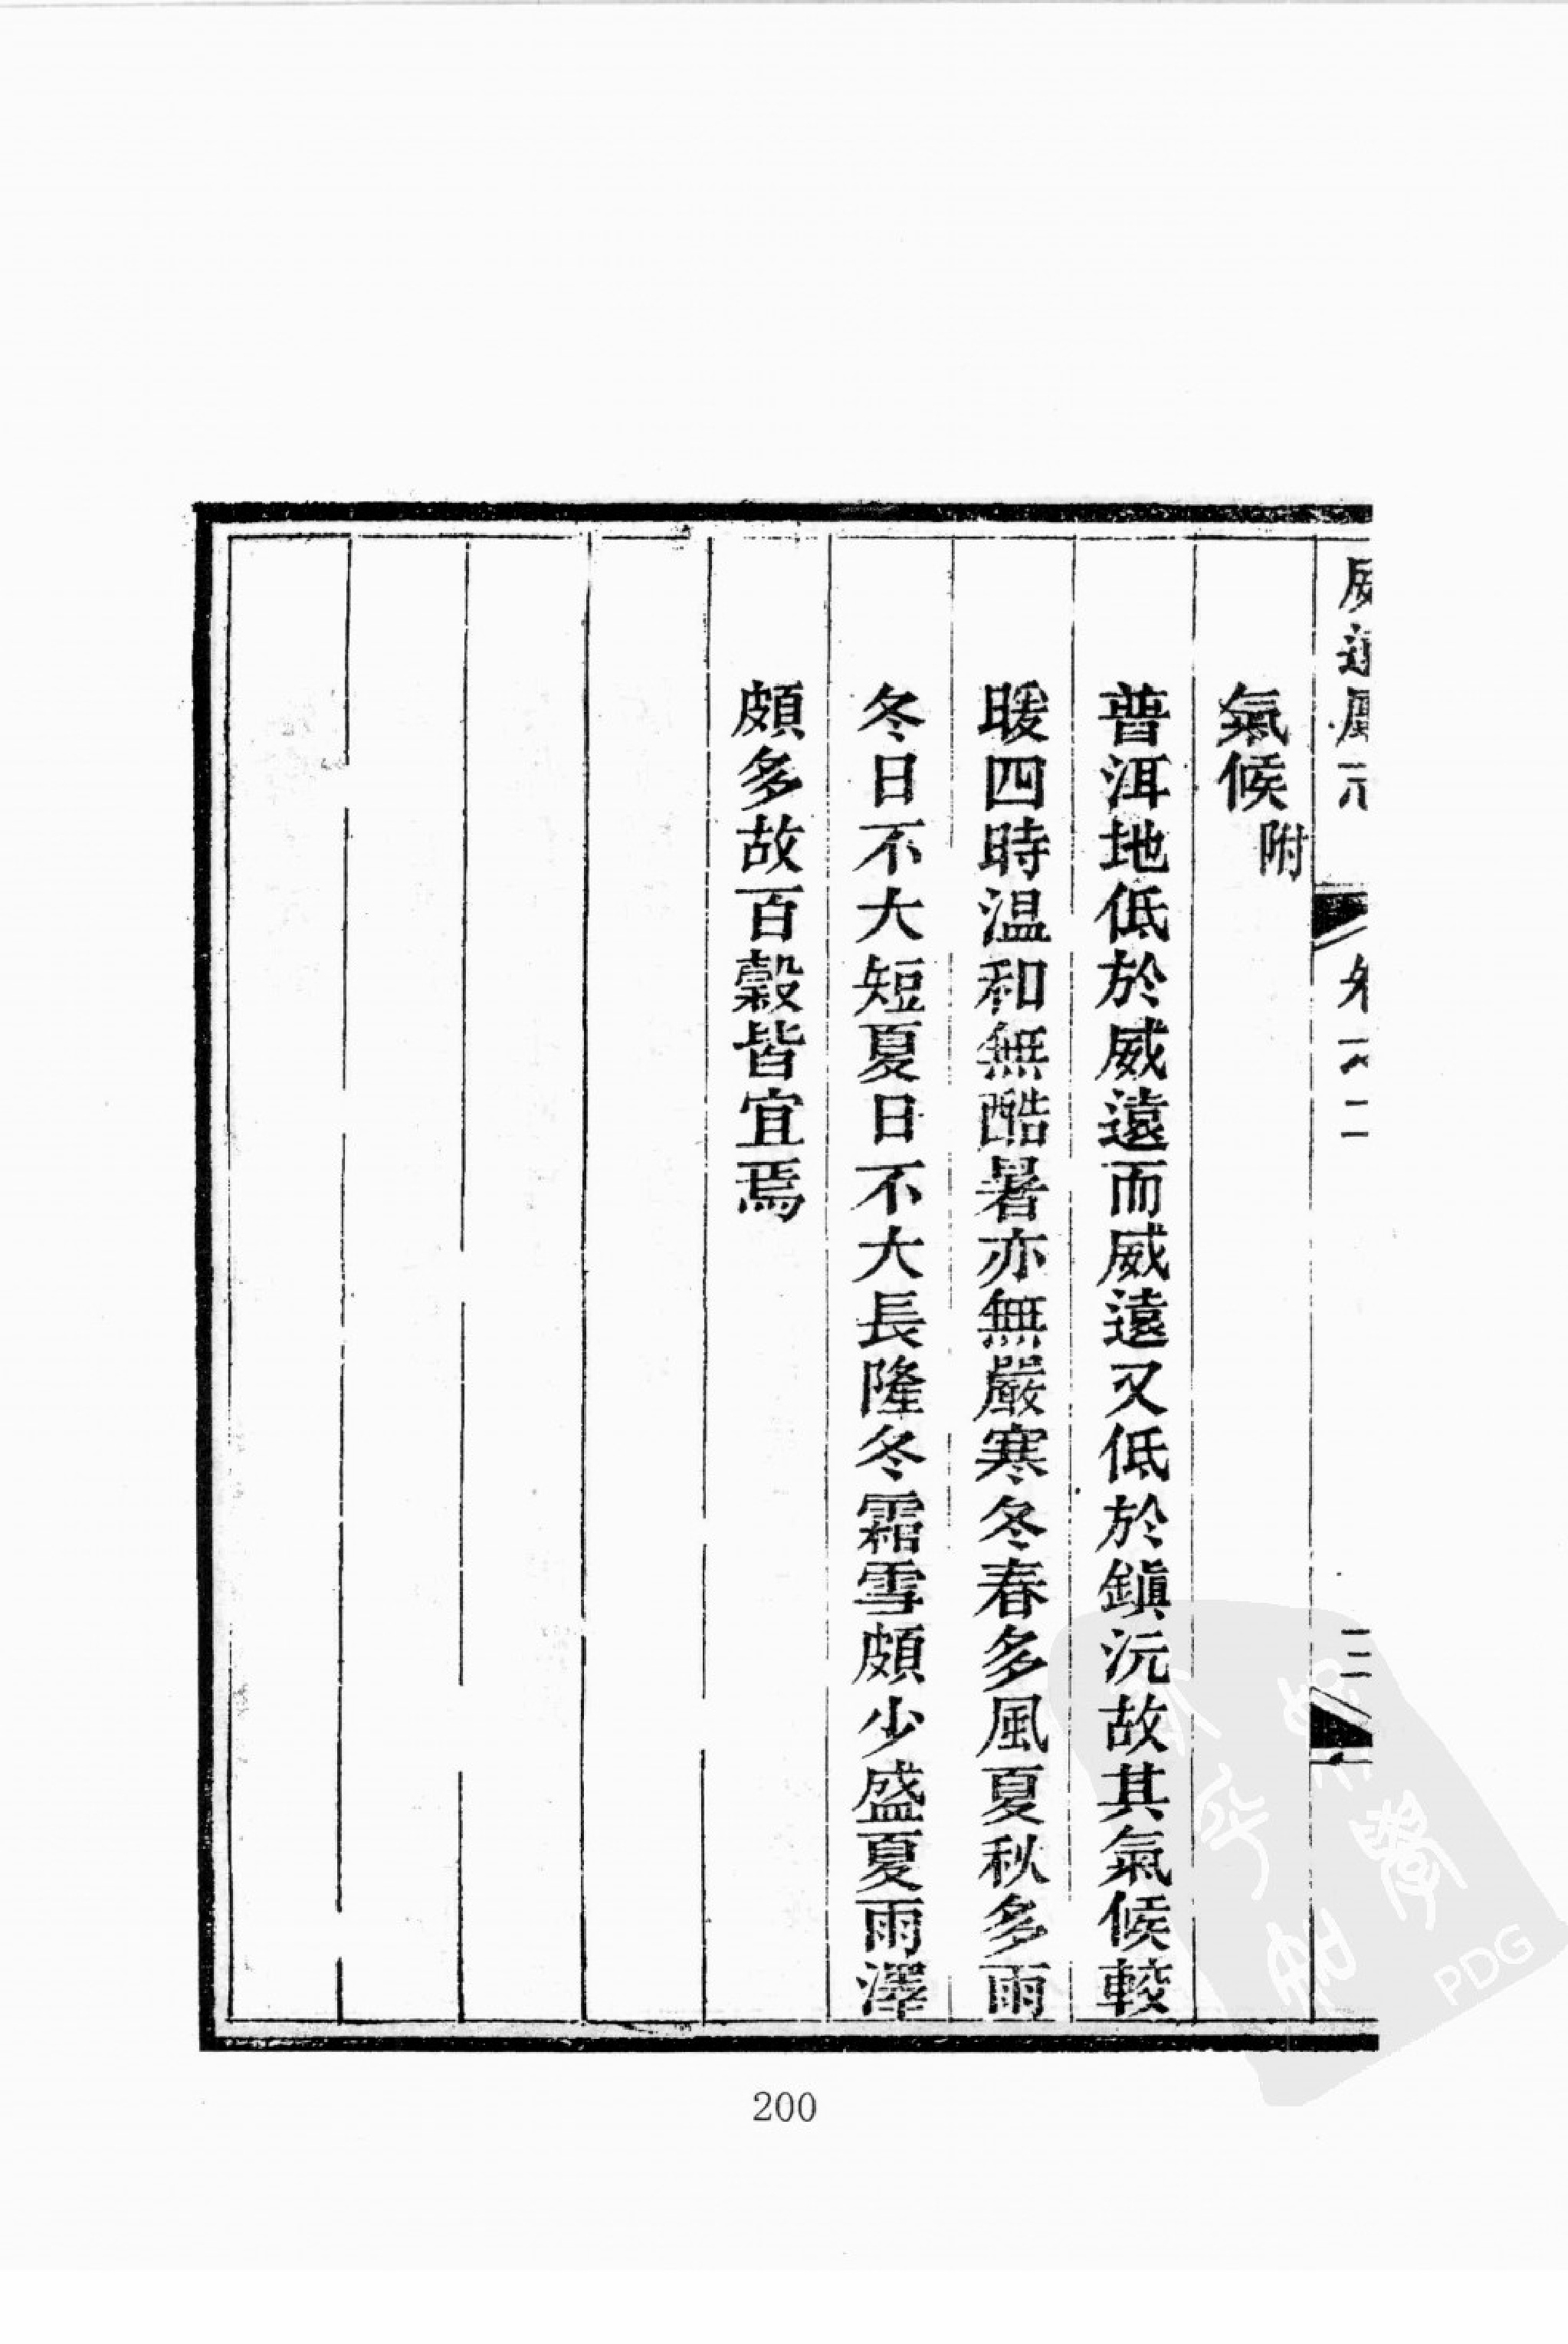 氣候附
普洱地低於威遠而威遠又低於鎮沅故其氣候較
暖四時温和無酷暑亦無嚴寒冬春多風夏秋多雨
冬日不大短夏日不大長隆冬霜雪頗少盛夏雨澤
頗多故百穀皆宜焉
200
PDG